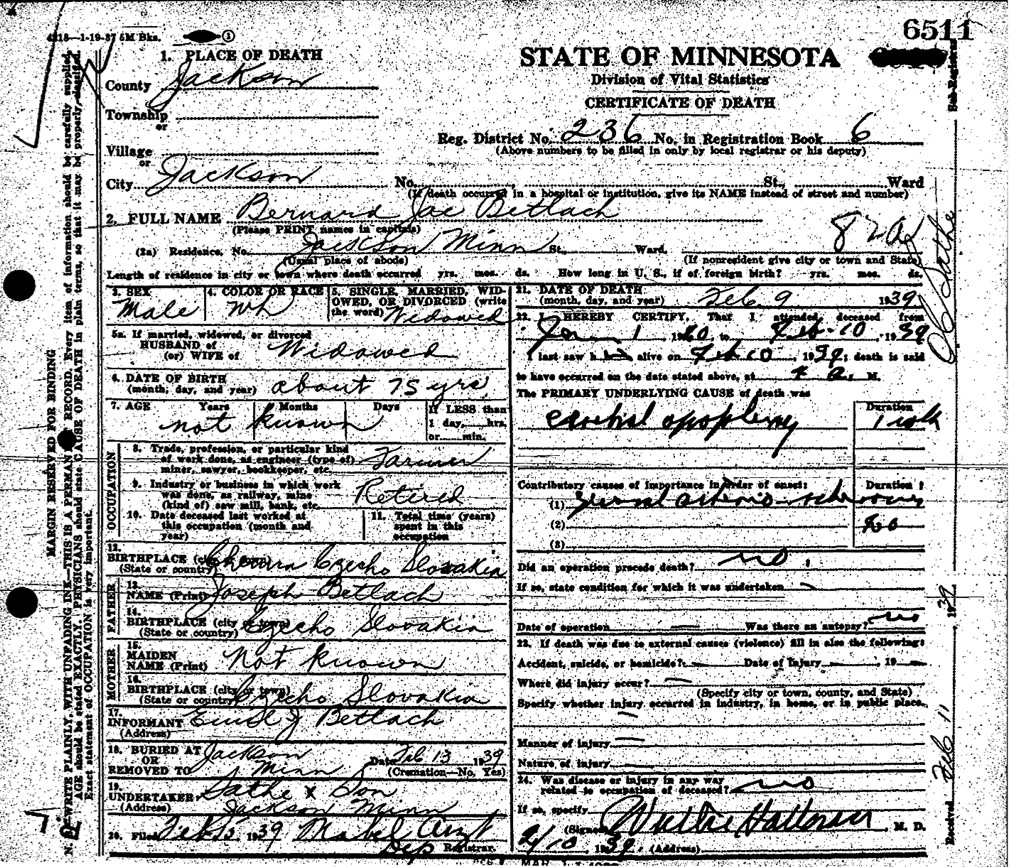 6511
4218—1-19-37 5M Bks.
1. PLACE OF DEATH
STATE OF MINNESOTA
Division of Vital Statistics
CERTIFICATE OF DEATH
County Jackson
Township
or
Village
or
City Jackson
Reg. District No. 236 No. in Registration Book 6
(Above numbers to be filled in only by local registrar or his deputy)
No. St., Ward
(If death occurred in a hospital or institution, give its NAME instead of street and number)
2. FULL NAME Bernard Jac Betlach
(Please PRINT names in capitals)
(2a) Residence, No. Jackson Minn St., Ward.
(Usual place of abode) (If nonresident give city or town and State)
Length of residence in city or town where death occurred yrs. mos. ds. How long in U. S., if of foreign birth? yrs. mos. ds.
3. SEX Male
4. COLOR OR RACE Wh
5. SINGLE, MARRIED, WIDOWED, OR DIVORCED (write the word) Widowed
5a. If married, widowed, or divorced
HUSBAND of
(or) WIFE of Widowed
6. DATE OF BIRTH
(month, day, and year) about 75 yrs.
7. AGE Years Months Days If LESS than
1 day, hrs.
or min.
not known
OCCUPATION
8. Trade, profession, or particular kind
of work done, as engineer (type of)
miner, sawyer, bookkeeper, etc. Farmer
9. Industry or business in which work
was done, as railway, mine
(kind of) saw mill, bank, etc. Retired
10. Date deceased last worked at
this occupation (month and
year)
11. Total time (years)
spent in this
occupation
12. BIRTHPLACE (city
(State or country) Czecho Slovakia
FATHER
13. NAME (Print) Joseph Betlach
14. BIRTHPLACE (city or town)
(State or country) Czecho Slovakia
MOTHER
15. MAIDEN
NAME (Print) Not known
16. BIRTHPLACE (city or town)
(State or country) Czecho Slovakia
17. INFORMANT Emil J Betlach
(Address)
18. BURIED AT Jackson
OR
REMOVED TO Minn
Date Feb 13 1939
(Cremation—No, Yes)
19. UNDERTAKER Sathe & Son
(Address) Jackson Minn
20. Filed 1939 Mabel
Dep Registrar.
21. DATE OF DEATH
(month, day, and year) Feb. 9 1939
22. I HEREBY CERTIFY, That I attended, deceased from
Jan 1 to Feb-10, 1939
I last saw h alive on Feb 10, 1939; death is said
to have occurred on the date stated above, at 4 a. M.
The PRIMARY UNDERLYING CAUSE of death was
Duration
apoplexy 1 wk
Contributory causes of importance in order of onset: Duration
(1)
(2)
(3)
Did an operation precede death? no
If so, state condition for which it was undertaken
Date of operation Was there an autopsy? no
23. If death was due to external causes (violence) fill in also the following:
Accident, suicide, or homicide? Date of Injury 19
Where did injury occur?
(Specify city or town, county, and State)
Specify whether injury occurred in industry, in home, or in public place.
Manner of injury
Nature of injury
24. Was disease or injury in any way
related to occupation of deceased? no
If so, specify
(Signed) M. D.
2/10 1939 (Address)
MARGIN RESERVED FOR BINDING
N. B.—WRITE PLAINLY, WITH UNFADING INK—THIS IS A PERMANENT RECORD. Every item of information should be carefully supplied.
AGE should be stated EXACTLY. PHYSICIANS should state CAUSE OF DEATH in plain terms, so that it may be properly classified.
Exact statement of OCCUPATION is very important.
Sub-Registrar
Received Feb 11 1939